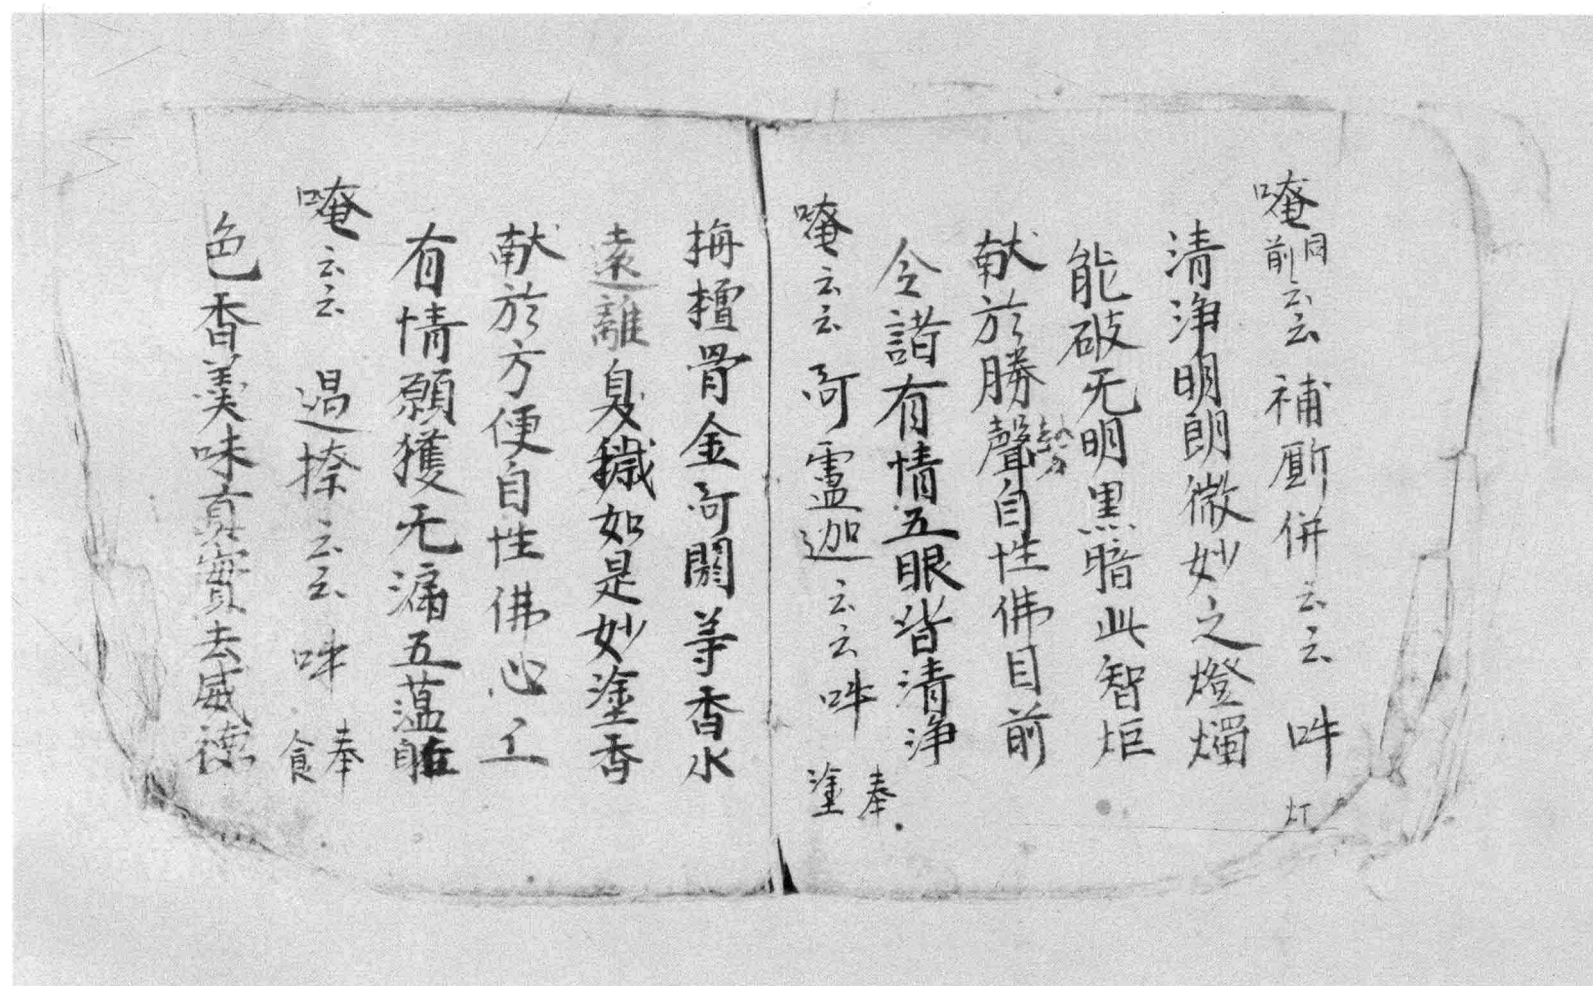 唵同前云云補厮併云云吽 灯
清淨明朗微妙之燈燭
能破无明黑暗此智炬
献於勝聲勢自性佛目前
令諸有情五眼皆清淨
唵云云阿盧迦云云吽 奉塗
栴檀骨金阿閼等香水
遠離臭穢如是妙塗香
献於方便自性佛心上
有情願獲无漏五蕴
唵云云 遏捺云云 吽 奉食
色香美味真實去威德